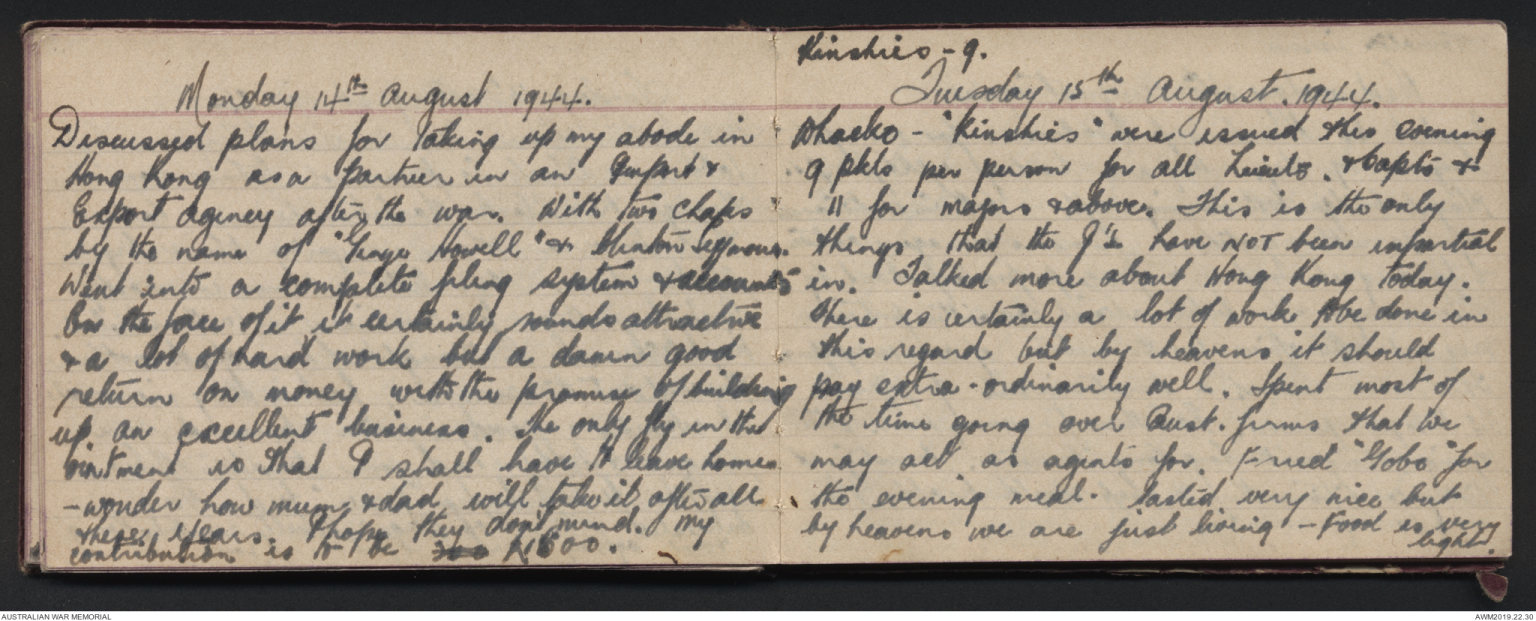 Monday 14th August 1944.
Discussed plans for taking up my abode in
Hong Kong as a partner in an Import &
Export agency after the war. With two chaps
by the name of "Ginge Howell" &
Went into a complete filing system & accounts
On the face of it it certainly sounds attractive
& a lot of hard work but a damn good
return on money with the promise of building
up an excellent business. The only fly in the
ointment is that I shall have to leave home
- wonder how mum & dad will take it after all
these years. I hope they don't mind. My
contribution is to be £1500.
Kinshies - 9.
Tuesday 15th August. 1944.
Whacko - "Kinshies" were issued this evening
9 pkts per person for all Lieuts. & Capts &
11 for majors & above. This is the only
things that the J's have NOT been impartial
in. Talked more about Hong Kong today.
There is certainly a lot of work to be done in
this regard but by heavens it should
pay extra-ordinarily well. Spent most of
the time going over Aust. firms that we
may act as agents for. Fried "Gobo" for
the evening meal. Tasted very nice but
by heavens we are just living - Food is very
light.
AUSTRALIAN WAR MEMORIAL
AWM2019.22.30